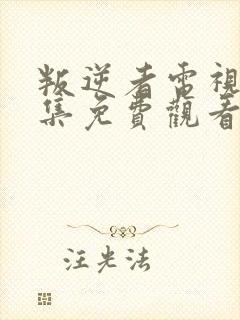 叛逆者電視
集免費觀看
汪光法